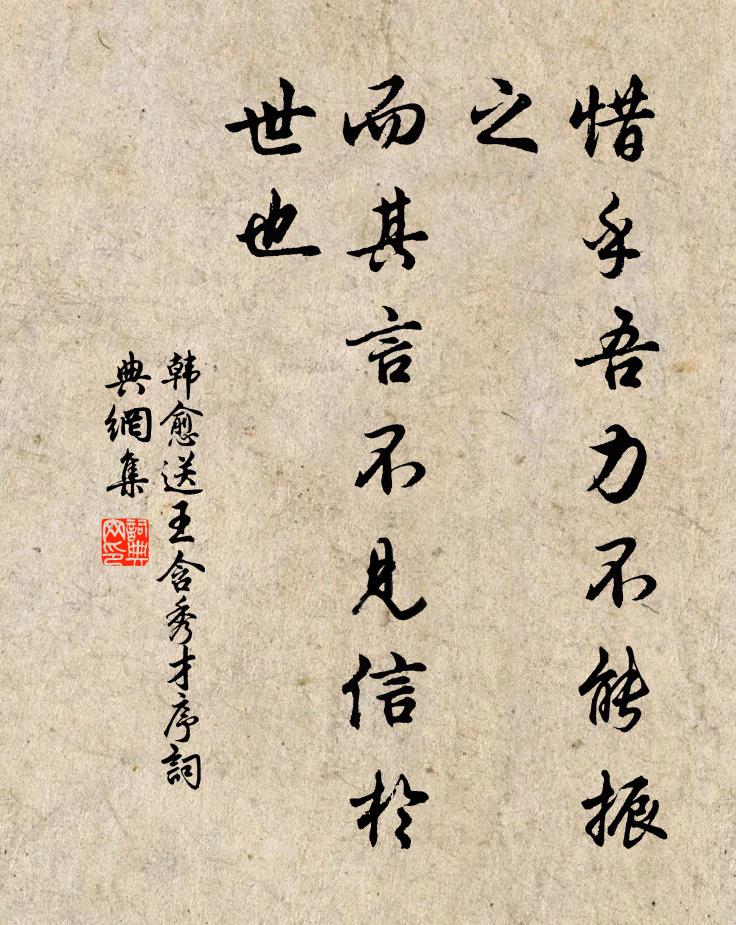 惜乎吾力不能振
之
而其言不見信於
世也
韩愈送王含秀才序詞
典網集
詞典
网印